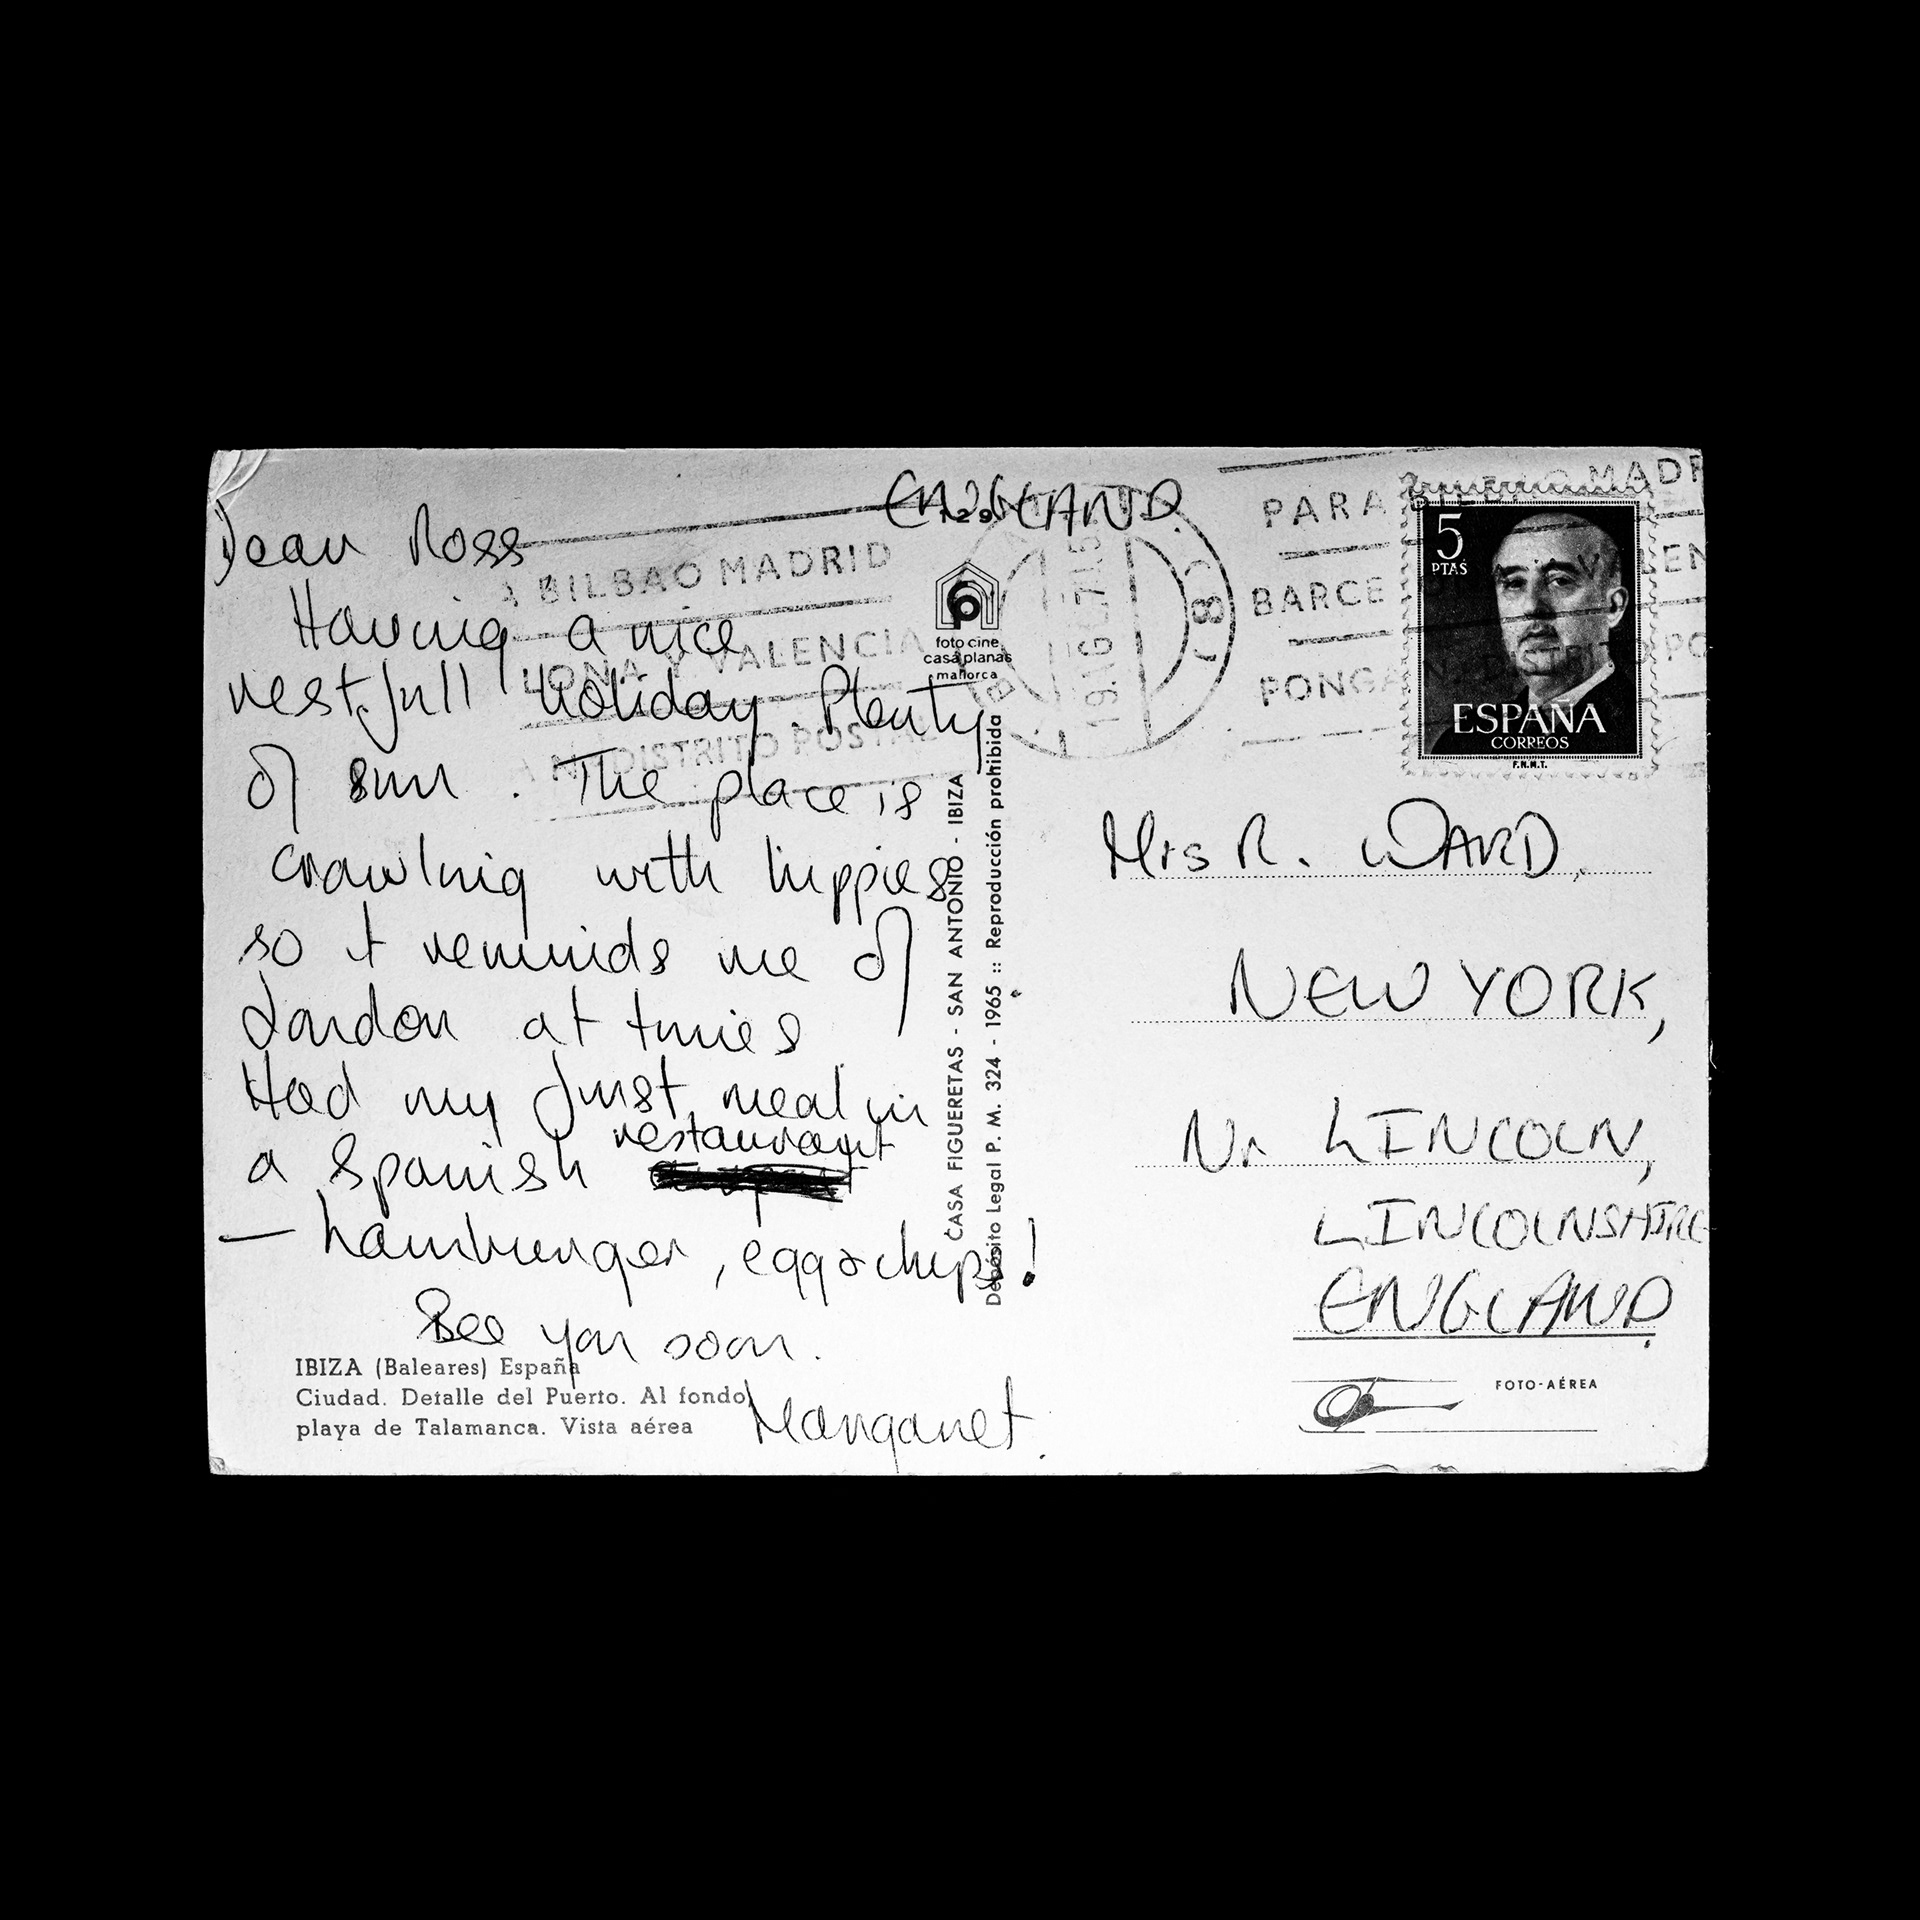 ENGLAND.
Dear Ross
Having a nice
restfull holiday. Plenty
of sun. The place is
crawling with hippies
so it reminds me of
London at times
Had my first meal in
a Spanish restaurant
– hamburger, egg & chips!
See you soon.
Margaret.
IBIZA (Baleares) España
Ciudad. Detalle del Puerto. Al fondo
playa de Talamanca. Vista aérea
A BILBAO MADRID
LONA Y VALENCIA
AN DISTRITO POSTAL
129
foto cine
casa planas
mallorca
CASA FIGUERETAS - SAN ANTONIO - IBIZA
Depósito Legal P. M. 324 - 1965 :: Reproducción prohibida
PARA BILBAO MADR
BARCE Y VALEN
PONGAN DISTRITO PO
5
PTAS
ESPAÑA
CORREOS
F.N.M.T.
Mrs R. WARD,
NEW YORK,
Nr LINCOLN,
LINCOLNSHIRE
ENGLAND
FOTO-AÉREA